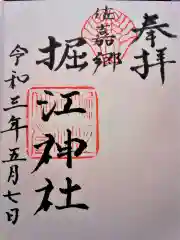 奉拝
嘉郷
堀江神社
令和三年五月七日